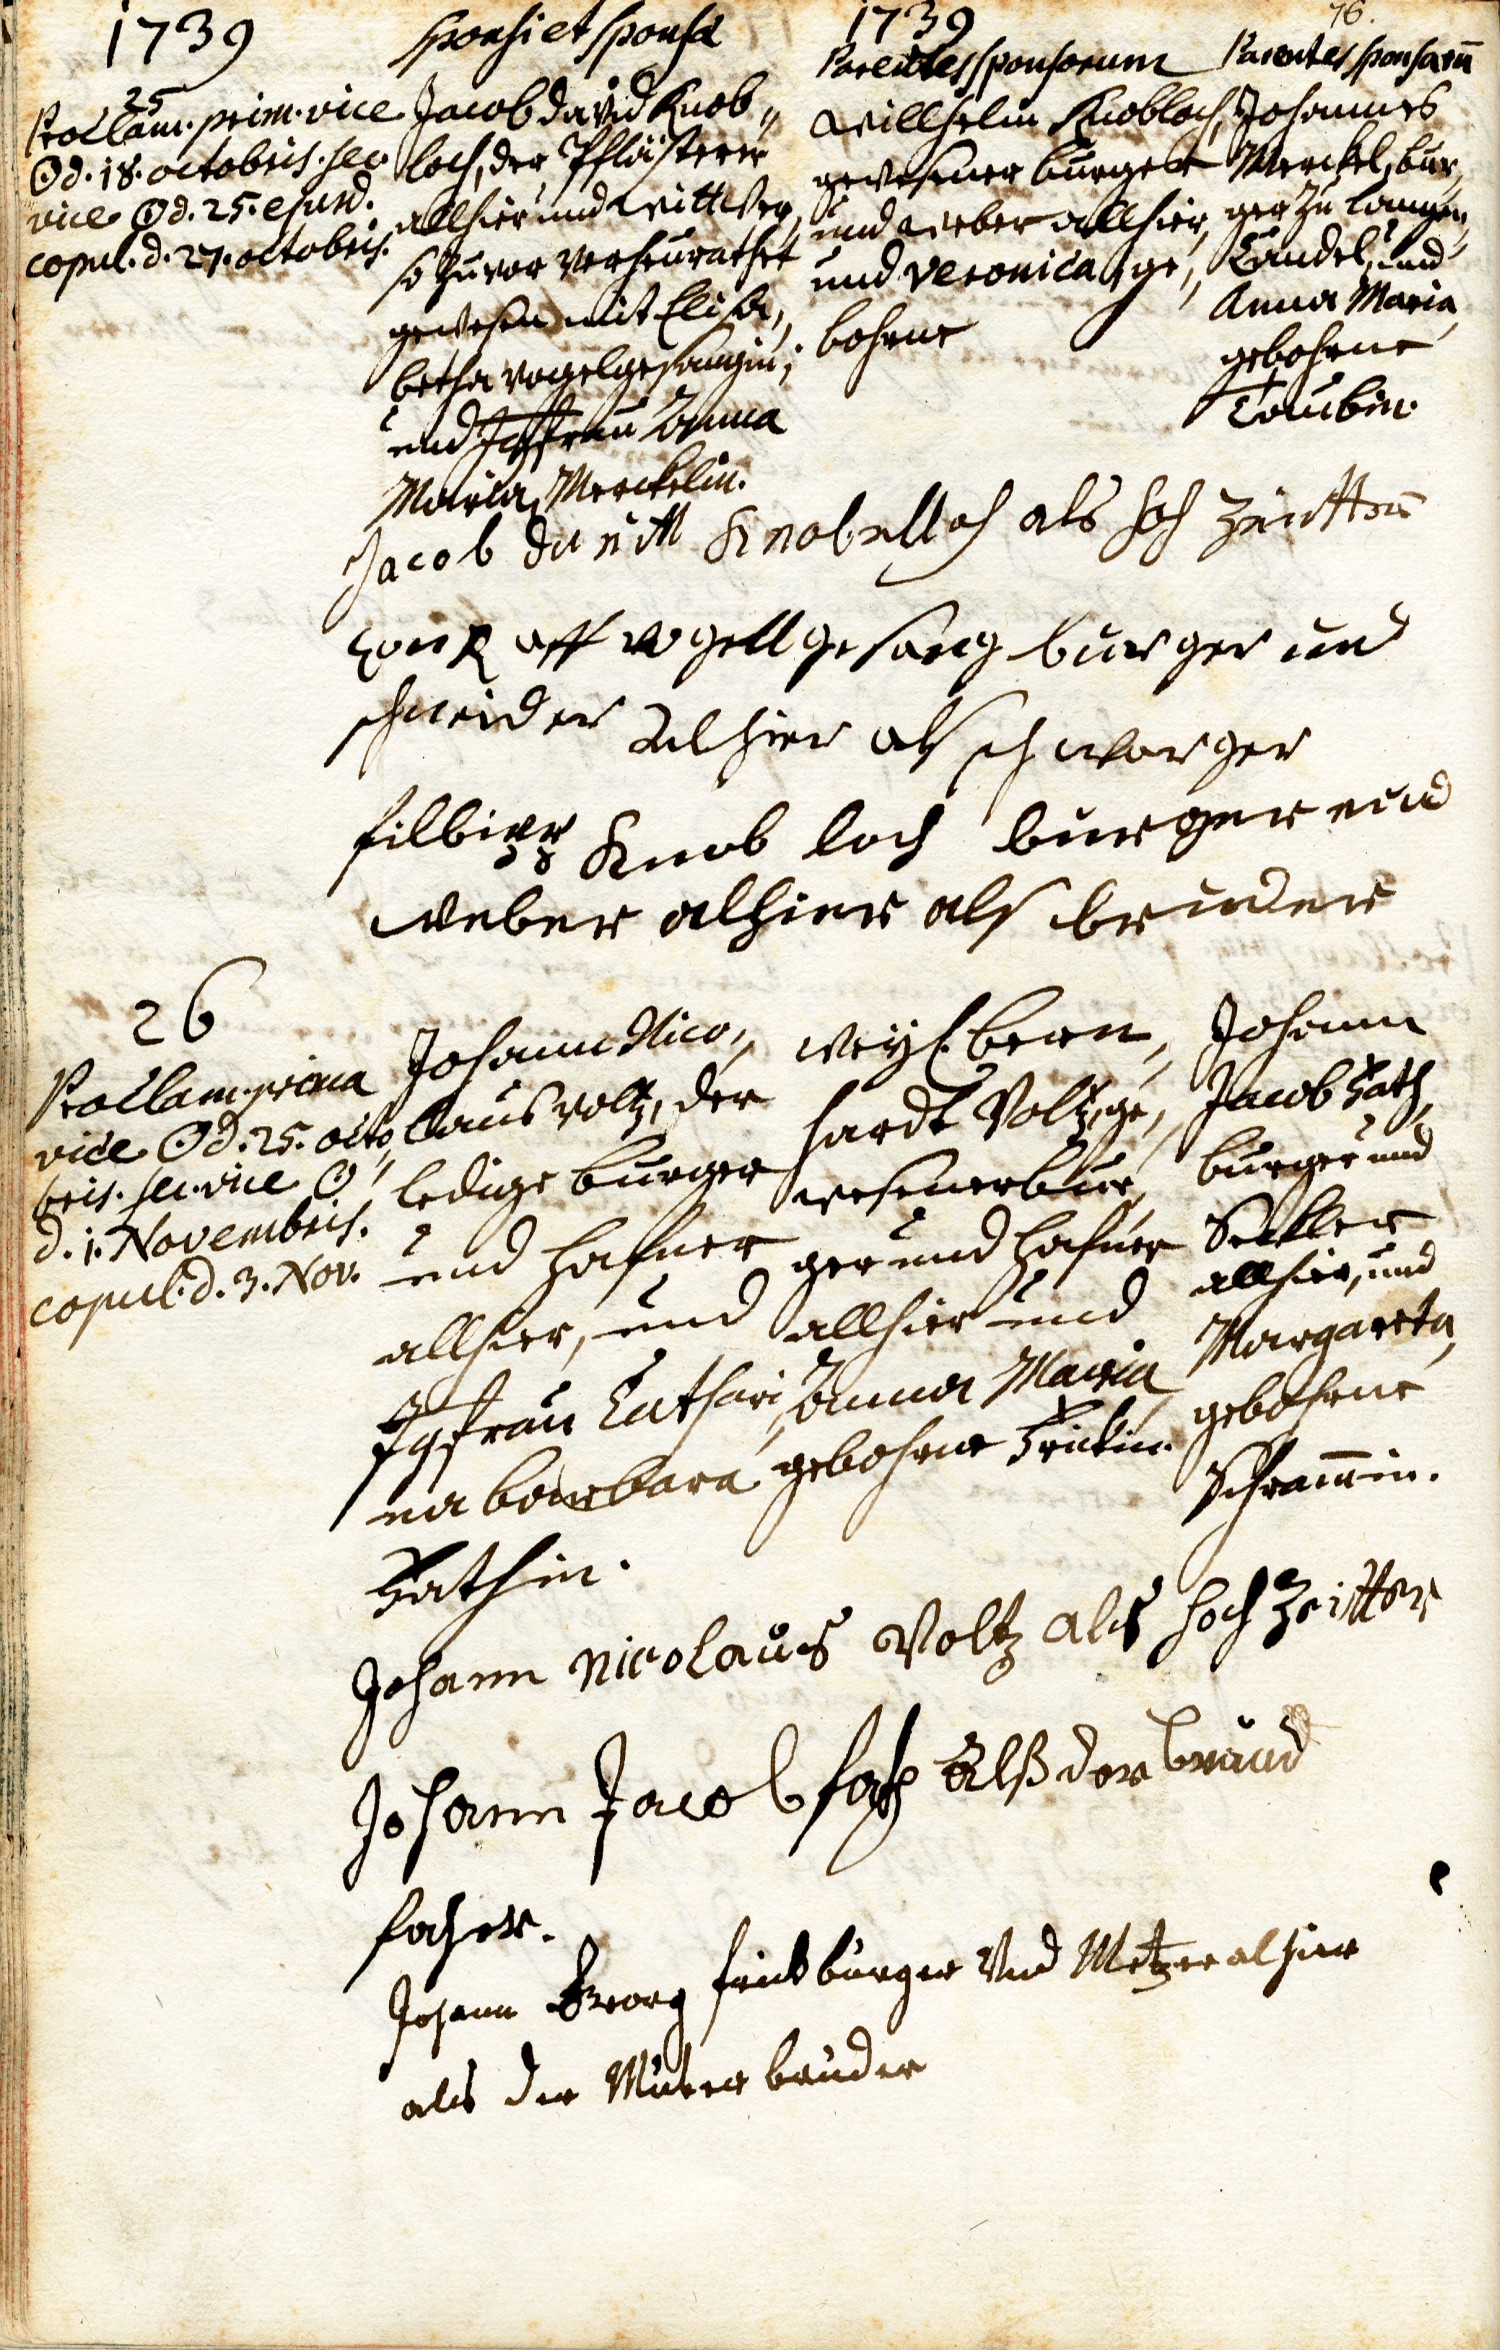 76.
1739
Sponsi et Sponsæ
1739
Parentes Sponsorum
Parentes Sponsarū
25
Proclam. prim. vice
⊙ d. 18. octobris. sec.
vice ⊙ d. 25. ejusd.
copul. d. 27. octobris.
Jacob David Knob„
loch, der Pflästerer
allhier und Wittwer,
so zuvor verheurathet
gewesen mit Elisa„
betha Vogelgesangin;
und Jgfrau Anna
Maria Merckelin.
Willhelm Knobloch,
gewesener burger
und Weber allhier,
und Veronica, ge„
bohrne
Johannes
Merckel, bur„
ger zu Langen„
Candel, und
Anna Maria,
gebohrne
Taubin.
Jacob davitt Knobelloch als hoch zeitter
vogell gesang burger und
schneider Alhier als schwarger
Knob loch burger und
weber alhier als bruder
26
Proclam. prima
vice ⊙ d. 25. octo„
bris. sec. vice ⊙
d. 1. Novembris.
copul. d. 3. Nov.
Johann Nico„
laus Voltz, der
ledige burger
und Hafner
allhier, und
Jgfrau Cathari„
na barbara
Fathin.
Weyl. bern„
hardt Voltz, ge„
wesener bur„
ger und Hafner
allhier und
Anna Maria
gebohrne Frickin.
Johann
Jacob Fath,
burger und
Seckler
allhier, und
Margareta,
gebohrne
Schrammin.
Johann nicolaus Voltz als hoch zeitter
Johann Jacob fath Alß der braud
father.
Johann Georg frick burger Und Metzger alhier
als der Muter bruder